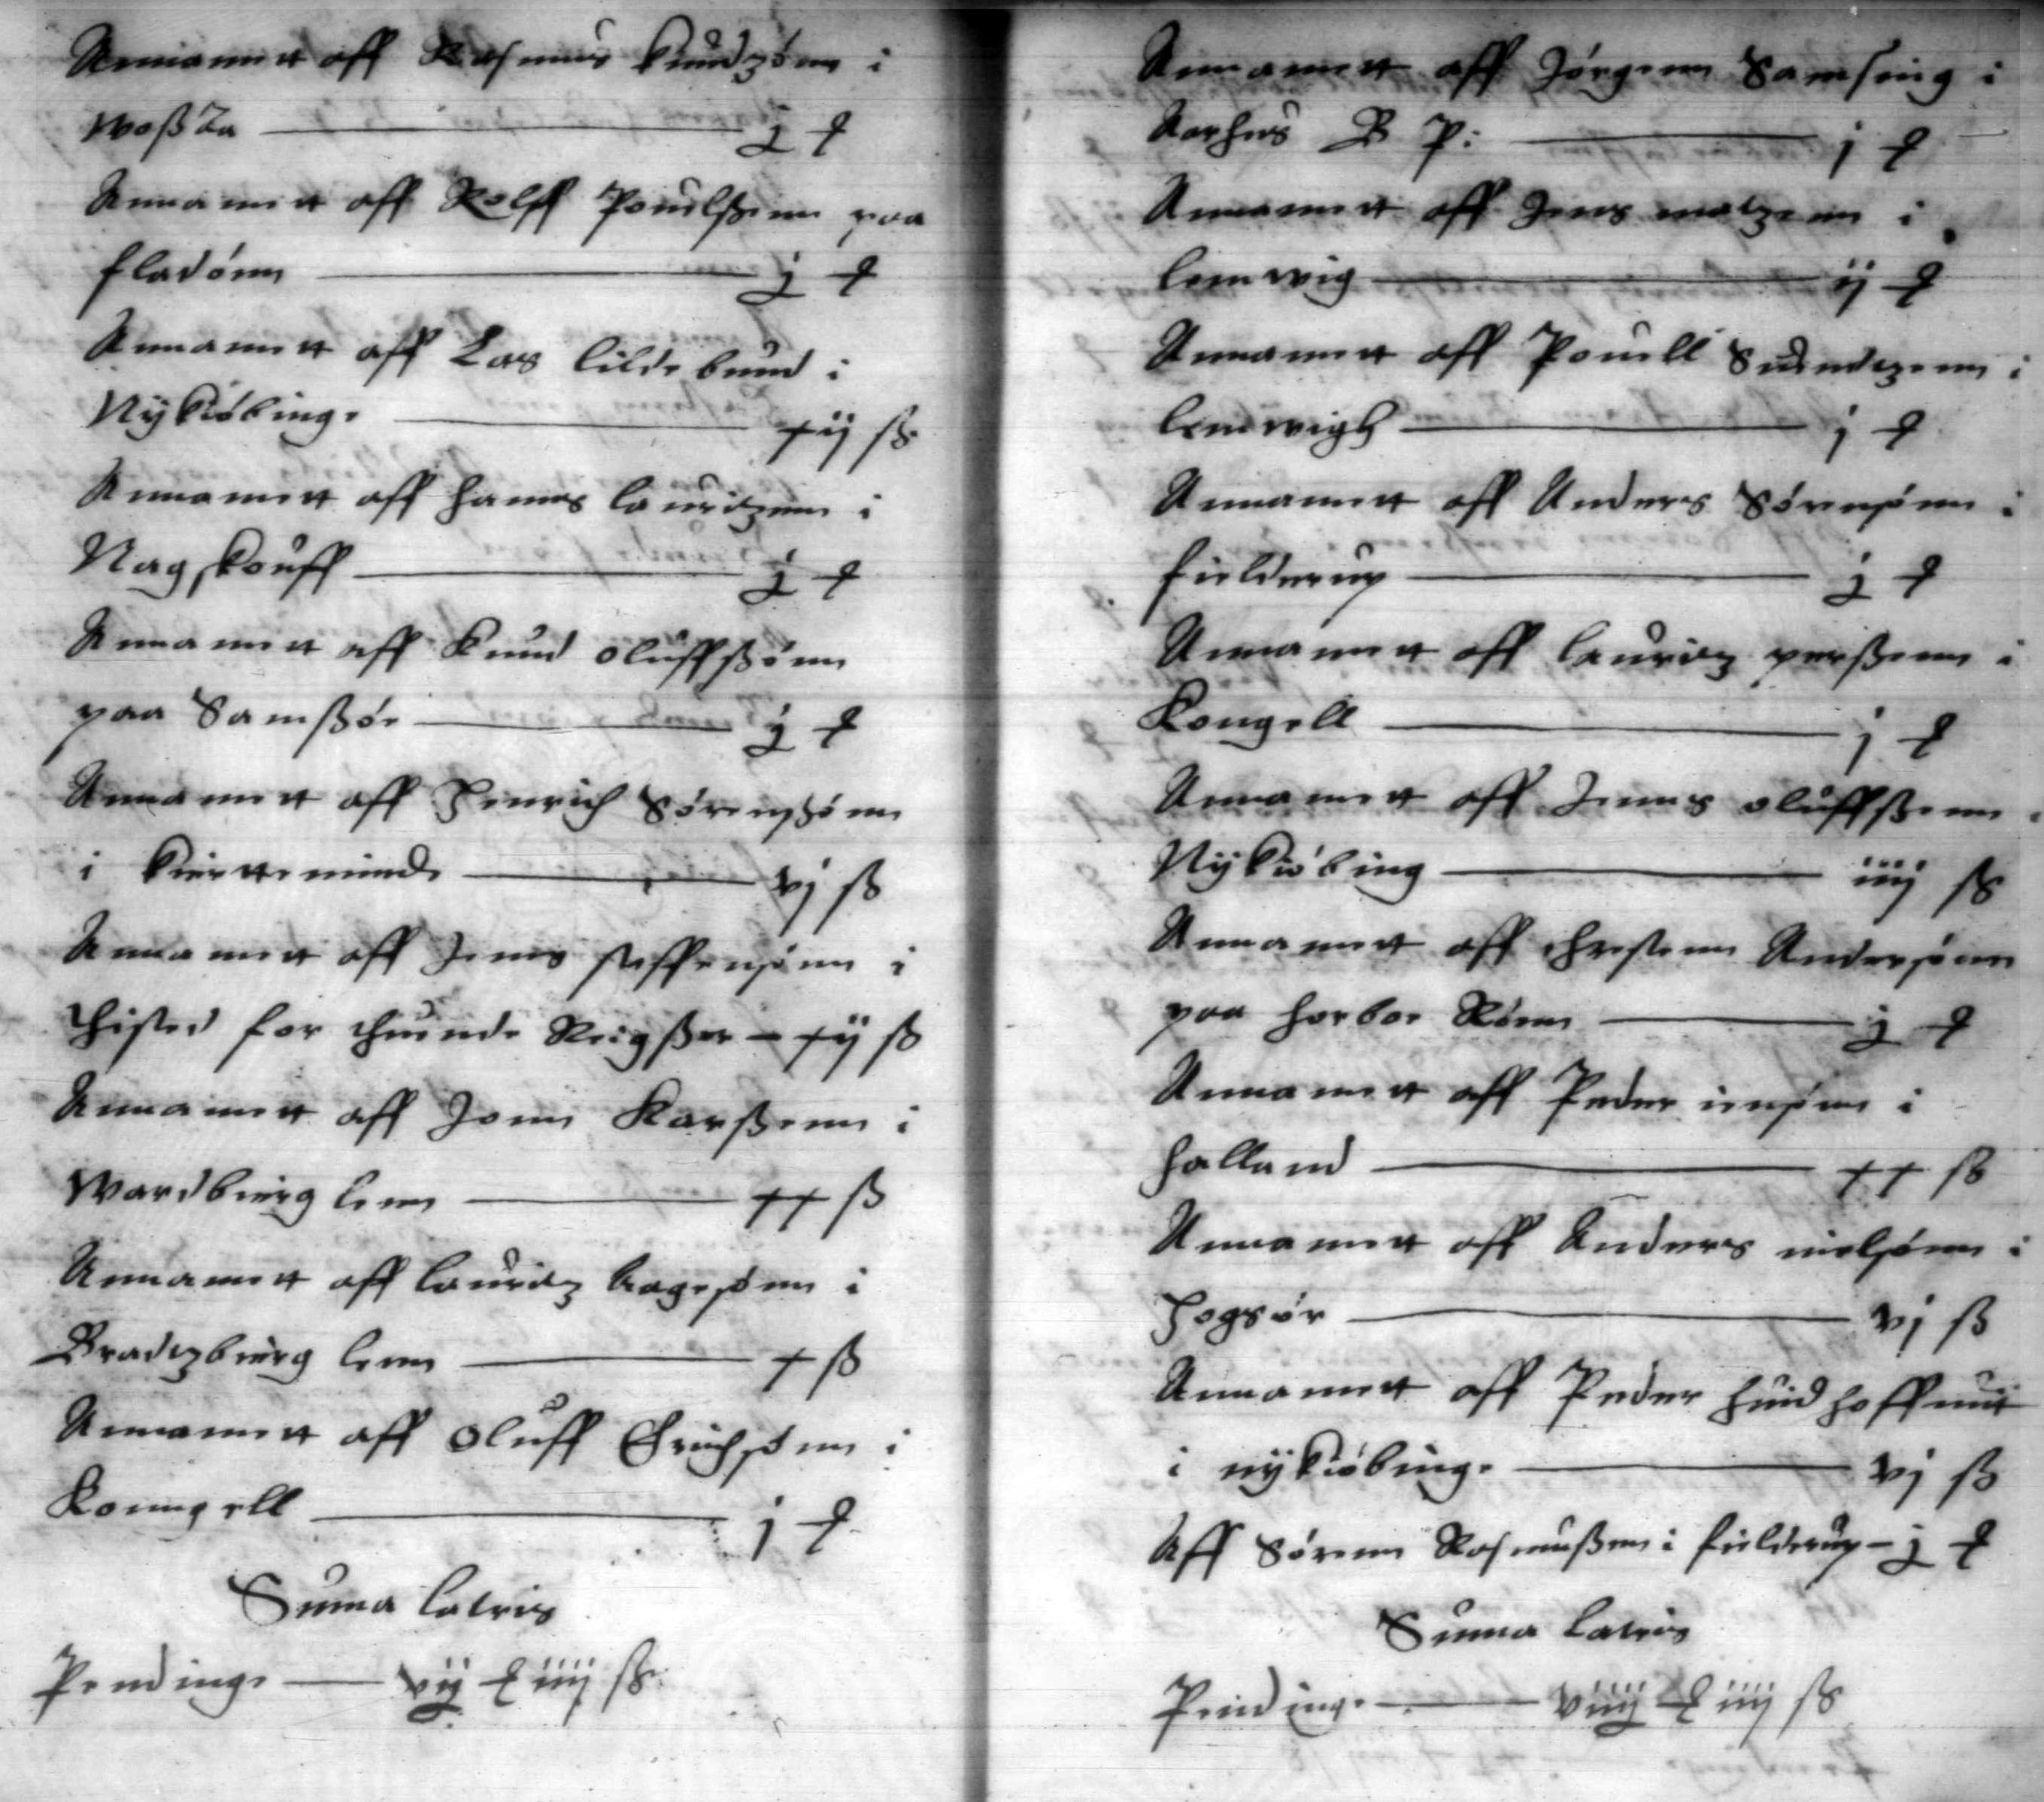 Annammett aff Rasmus knudzønn i
woß 2a — j ₰
Annammett aff Rolff Pouelßenn paa
fladønn — j ₰
Annammett aff Las lildebund i
Nykiøbinge — xij ß
Annammett aff hanns lauridzenn i
Nagskouff — j ₰
Annammett aff Knud oluffßønn
paa Samßøe — j ₰
Annammett aff Henrich Sørenßønn
i kiertteminde — vj ß
Annammett aff Jens steffensønn i
thisted for thuende Reigßer — xij ß
Annammett aff Jonn Karßenn i
Wardbierg lenn — xx ß
Annammett aff lauridz aagesønn i
Bradtzbierg lenn — x ß
Annammett aff oluff Erichsønn i
Konngell — j ₰
Suma lateris
Pendinge — vij ₰ iiij ß
Annammett aff Jørgenn Samsing i
Aarhus B P: — j ₰
Annammett aff Jens matzenn i
lemwig — ij ₰
Annammett aff Pouell Suendtzenn i
lemwigh — j ₰
Annammett aff Anders Sørensønn i
fielderup — j ₰
Annammett aff lauridz perßenn i
Kongell — j ₰
Annammett aff Jenns oluffßenn i
Nykiøbing — iiij ß
Annammett aff chrestenn Andersønn
paa harboe Rønn — j ₰
Annammett aff Peder iensønn i
halland — xx ß
Annammett aff Anders nielsønn i
Hogsør — vj ß
Annammett aff Peder huid hoffuit
i nykiøbinge — vj ß
Aff Sørenn Rasmußen i fielderup — j ₰
Suma Lateris
Pendinge — viiij ₰ iiij ß